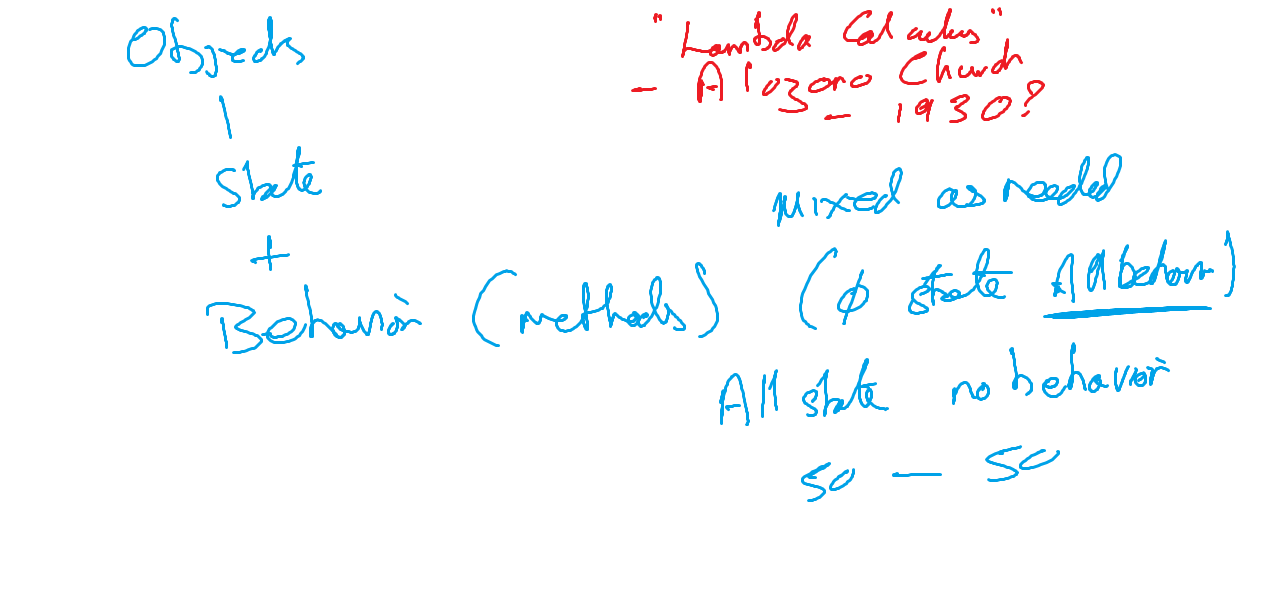 Objects
State
+
Behavior (methods)
"Lambda Calculus"
- Alozono Church
- 1930?
Mixed as needed
(φ state All behavior)
All state no behavior
50 - 50